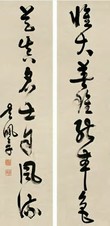 惟大英雄能本色
是真名士自風流
吳佩孚